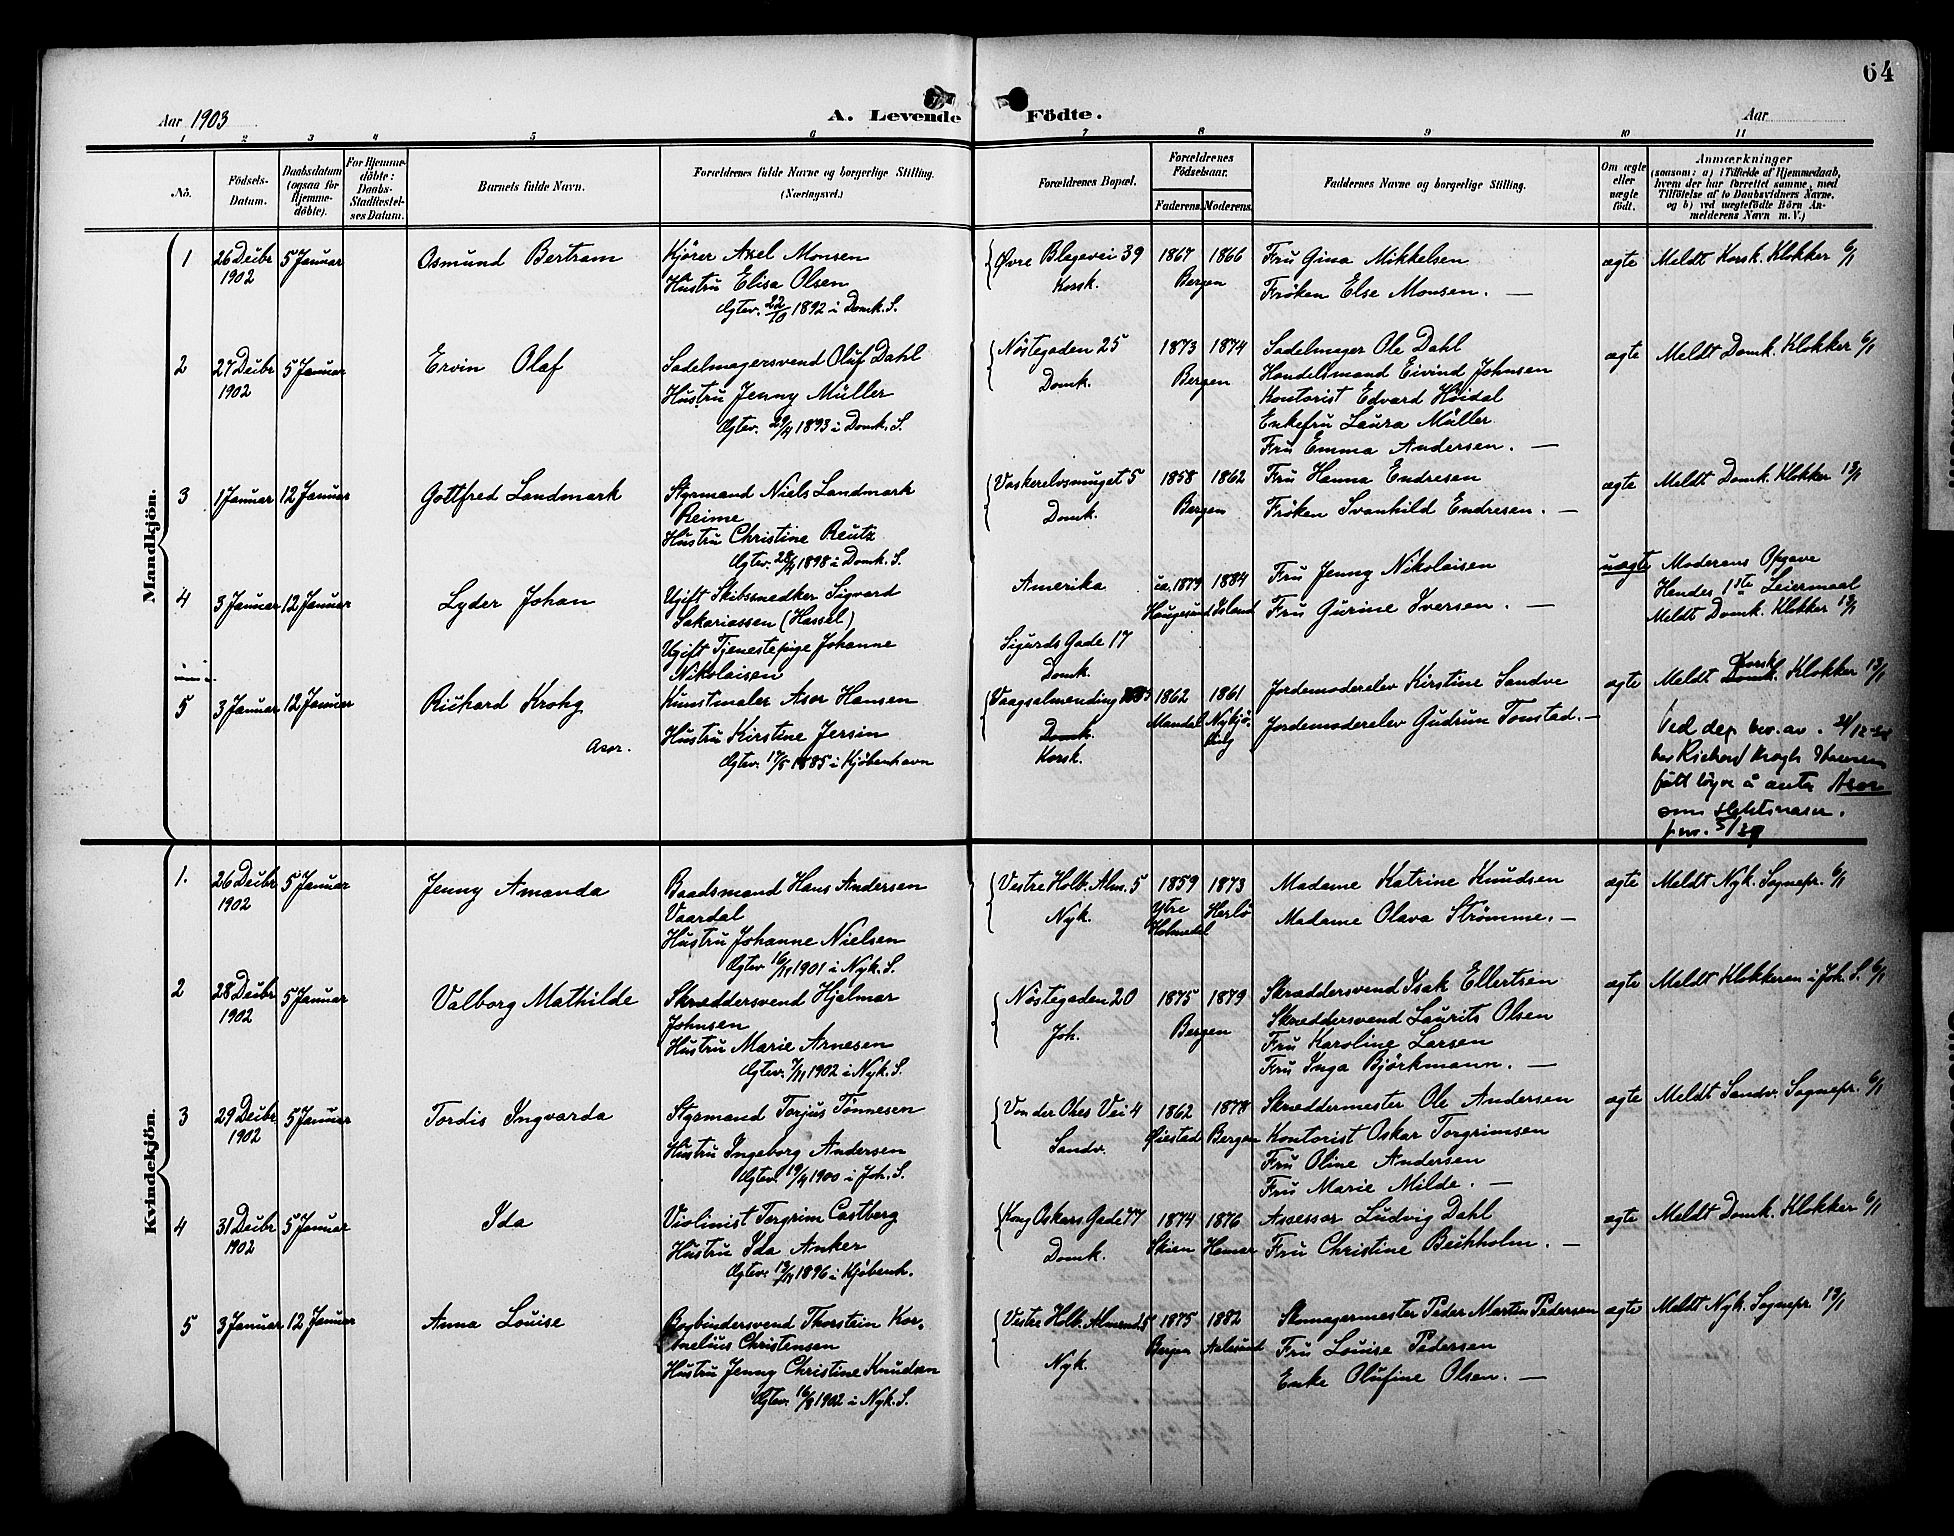 64
Aar 1903
A. Levende Födte.
Aar
1 2 3 4 5 6 7 8 9 10 11
No.
Födsels-Datum.
Daabsdatum (ogsaa for Hjemme-döbte).
For Hjemme-döbte: Daabs-Stadfæstel-ses Datum.
Barnets fulde Navn.
Forældrenes fulde Navne og borgerlige Stilling. (Næringsvei.)
Forældrenes Bopæl.
Forældrenes Födselsaar.
Faderens. Moderens.
Faddernes Navne og borgerlige Stilling.
Om ægte eller uægte födt.
Anmærkninger
(saasom: a) i Tilfælde af Hjemmedaab, hvem der har forrettet samme, med Tilföielse af to Daabsvidners Navne, og b) ved uægtefödte Börn An-melderens Navn m. V.)
Mandkjön.
1 26 Decbr 1902 5 Januar Osmund Bertram
Kjører Axel Monsen
Hustru Elisa Olsen
Ægtev. 22/10 1892 i Domk. S.
Øvre Blegevei 39
Korsk.
1867 1866
Bergen
Fru Gina Mikkelsen
Frøken Else Monsen. —
ægte
Meldt Korsk. Klokker 6/1
2 27 Decbr 1902 5 Januar Ervin Olaf
Sadelmagersvend Oluf Dahl
Hustru Jenny Müller
Ægtev. 29/4 1893 i Domk. S.
Nöstegaden 25
Domk.
1873 1874
Bergen
Sadelmager Ole Dahl
Handelsmand Eivind Johnsen
Kontorist Edvard Höidal
Enkefru Laura Müller
Fru Emma Andersen. —
ægte
Meldt Domk. Klokker 6/1
3 1 Januar 12 Januar Gottfred Landmark
Styrmand Niels Landmark
Reime
Hustru Christine Reutz
1898 i Domk. S.
Vaskerelvsmuget 5
Domk.
1858 1862
Bergen
Fru Hanna Endresen
Frøken Svanhild Endresen. —
ægte
Meldt Domk. Klokker 13/1
4 3 Januar 12 Januar Lyder Johan
Ugift Skibssmedker Sigvard
Sakariassen (Hassel)
Ugift Tjenestepige Johanne
Nikolaisen
Amerika
Sigurds Gade 17
Domk.
ca. 1879 1884
Haugesund Island
Fru Jenny Nikolaisen
Fru Gurine Iversen. —
uægte
Moderens Opgave
Hendes 1ste Leiermaal
Meldt Domk. Klokker 13/1
5 3 Januar 12 Januar Richard Krohg
Asor.
Kunstmaler Asor Hansen
Hustru Kirstine Jersin
Ægtev. 17/5 1885 i Kjöbenhavn
Vaagsalmending
Domk.
Korsk.
1862 1861
Mandal Nykjö-bing
Jordemoderelev Kirstine Sandve
Jordemoderelev Gudrun Tonstad. —
ægte
Meldt Domk. Korsk. Klokker 13/1
Ved dep. bev. av
har Richard Krogh Hansen
fått löyve å anta Asor
som slektsnavn.
Kvindekjön.
1. 26 Decbr 1902 5 Januar Jenny Amanda
Baadsmand Hans Andersen
Vaardal
Hustru Johanne Nielsen
Ægtev. 16/11 1901 i Nyk. S.
Vestre Holb. Alm. 5
Nyk.
1859 1873
Ytre Holmedal Herlö
Madame Katrine Knudsen
Madame Olava Strömme. —
ægte
Meldt Nyk. Sognepr. 6/1
2 28 Decbr 1902 5 Januar Valborg Mathilde
Skræddersvend Hjalmar
Johnsen
Hustru Marie Arnesen
Ægtev. 7/11 1902 i Nyk. S.
Nöstegaden 20
Joh.
1875 1879
Bergen
Skræddersvend Isak Ellertsen
Skræddersvend Laurits Olsen
Fru Karoline Larsen
Fru Inga Björkmann. —
ægte
Meldt Klokkeren i Joh. S. 6/1
3 29 Decbr 1902 5 Januar Tordis Ingvarda
Styrmand Torjus Tönnesen
Hustru Ingeborg Andersen
Ægtev. 19/4 1900 i Joh. S.
Von der Ohes Vei 4
Sandv.
1862 1878
Øiestad Bergen
Skræddermester Ole Andersen
Kontorist Oskar Torgrimsen
Fru Oline Andersen
Fru Marie Milde. —
ægte
Meldt Sandv. Sognepr. 6/1
4 31 Decbr 1902 5 Januar Ida
Violinist Torgrim Castberg
Hustru Ida Anker
1896 i Kjöbenh.
Kong Oskars Gade 77
Domk.
1874 1876
Skien Hamar
Assessor Ludvig Dahl
Fru Christine Buchholm. —
ægte
Meldt Domk. Klokker 6/1
5 3 Januar 12 Januar Anna Louise
Bogbindersvend Thorstein Kor-
nelius Christensen
Hustru Jenny Christine Knudsen
1902 i Nyk. S.
Vestre Holb. Almend.
Nyk.
1875 1882
Bergen Aalesund
Skomagermester Peder Martin Pedersen
Fru Louise Pedersen
Enke Olufine Olsen. —
ægte
Meldt Nyk. Sognepr. 13/1